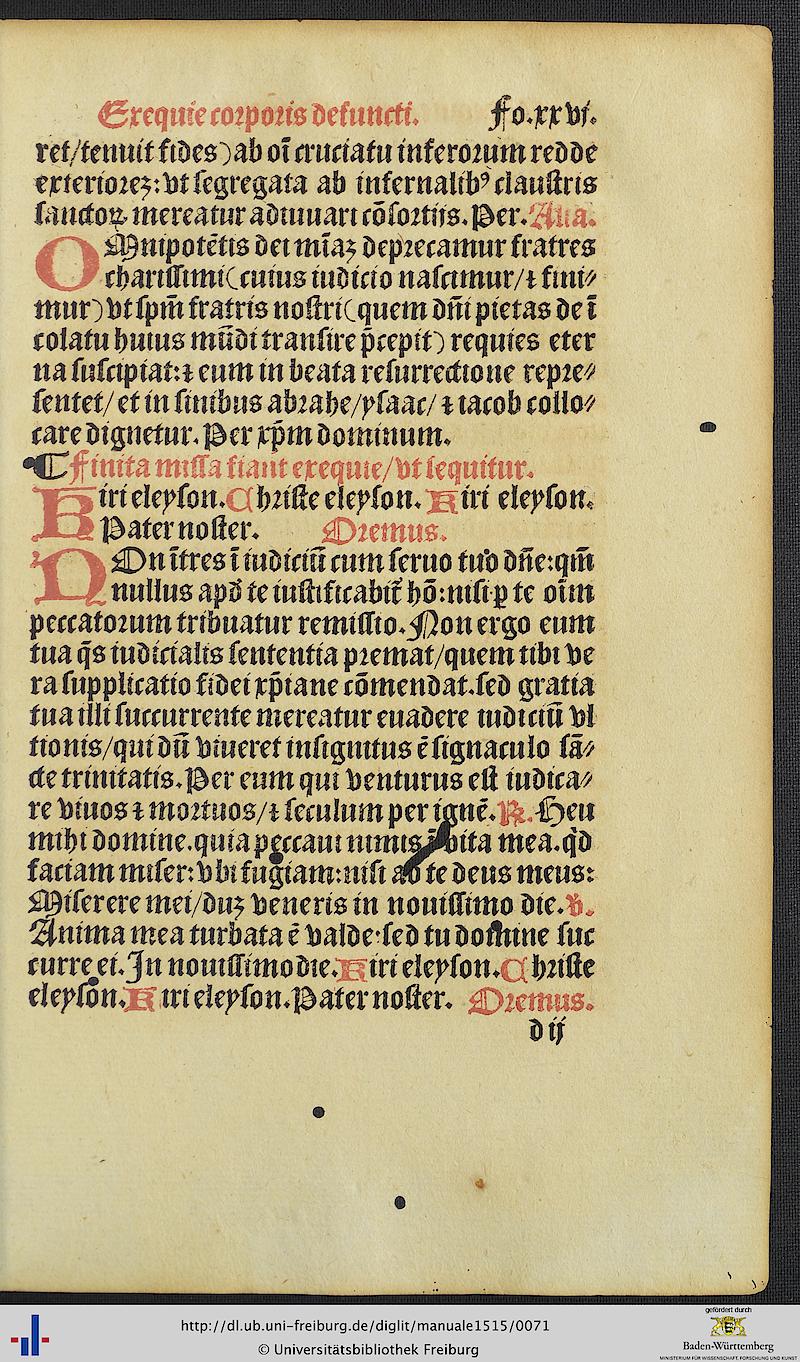 Exequie corporis defuncti. Fo.xxvi.
ret/tenuit fides) ab oī cruciatu inferorum redde
exteriorez: vt segregata ab infernalibꝰ claustris
sanctoꝝ mereatur adiuuari cōsortijs. Per. Alia.
OMnipotētis dei mīaz deprecamur fratres
charissimi (cuius iudicio nascimur/ ⁊ fini⸗
mur) vt spm̄ fratris nostri (quem dn̄i pietas de ī
colatu huius mūdi transire p̄cepit) requies eter
na suscipiat: ⁊ eum in beata resurrectione repre⸗
sentet/ et in sinibus abrahe/ ysaac/ ⁊ iacob collo⸗
care dignetur. Per xp̄m dominum.
¶ Finita missa fiant exequie/ vt sequitur.
Kiri eleyson. Christe eleyson. Kiri eleyson.
Pater noster. Oremus.
NOn ītres ī iudiciū cum seruo tuo dn̄e: qm̄
nullus apd̄ te iustificabit̄ hō: nisi ꝑ te oīm
peccatorum tribuatur remissio. Non ergo eum
tua q̄s iudicialis sententia premat/ quem tibi ve
ra supplicatio fidei xp̄iane cōmendat. sed gratia
tua illi succurrente mereatur euadere iudiciū vl
tionis/ qui dū viueret insignitus ē signaculo sā⸗
cte trinitatis. Per eum qui venturus est iudica⸗
re viuos ⁊ mortuos/ ⁊ seculum per ignē. ℟. Heu
mihi domine. quia peccaui nimis ī vita mea. qd̄
faciam miser: vbi fugiam: nisi ad te deus meus:
Miserere mei/ duz veneris in nouissimo die. ℣.
Anima mea turbata ē valde: sed tu domine suc
curre ei. In nouissimo die. Kiri eleyson. Christe
eleyson. Kiri eleyson. Pater noster. Oremus.
d ij
http://dl.ub.uni-freiburg.de/diglit/manuale1515/0071
© Universitätsbibliothek Freiburg
gefördert durch
Baden-Württemberg
MINISTERIUM FÜR WISSENSCHAFT, FORSCHUNG UND KUNST